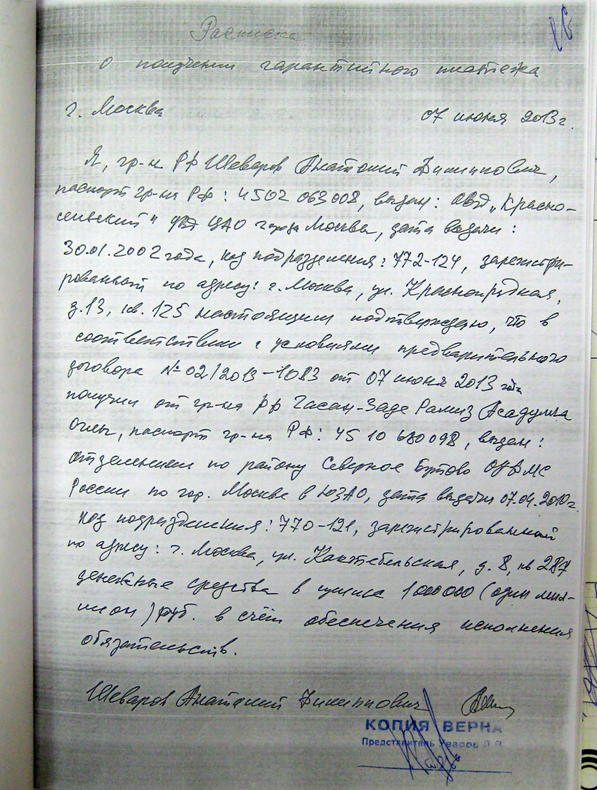 Расписка
о получении гарантийного платежа
г. Москва 07 июня 2013г.
Я, гр-н РФ Шеваров Анатолий Филиппович,
паспорт гр-на РФ: 4502 063008, выдан: ОВД „Красно-
сельский" УВД ЦАО города Москва, дата выдачи:
30.01.2002 года, код подразделения: 772-124, зарегистри-
рованный по адресу: г. Москва, ул. Краснопрудная,
д.13, кв. 125 настоящим подтверждаю, что в
соответствии с условиями предварительного
договора № 02/2013-1083 от 07 июня 2013 года
получил от гр-на РФ Гасан-Заде Рамиз Асадулла
Оглы, паспорт гр-на РФ: 45 10 680098, выдан:
отделением по району Северное Бутово ОУФМС
России по гор. Москве в ЮЗАО, дата выдачи 07.04.2010г.
код подразделения: 770-121, зарегистрированный
по адресу: г. Москва, ул. Коктебельская, д. 8, кв 287
денежные средства в сумме 1000000 (один мил-
лион) руб. в счёт обеспечения исполнения
обязательств.
Шеваров Анатолий Филиппович
КОПИЯ ВЕРНА
Представитель Уваров